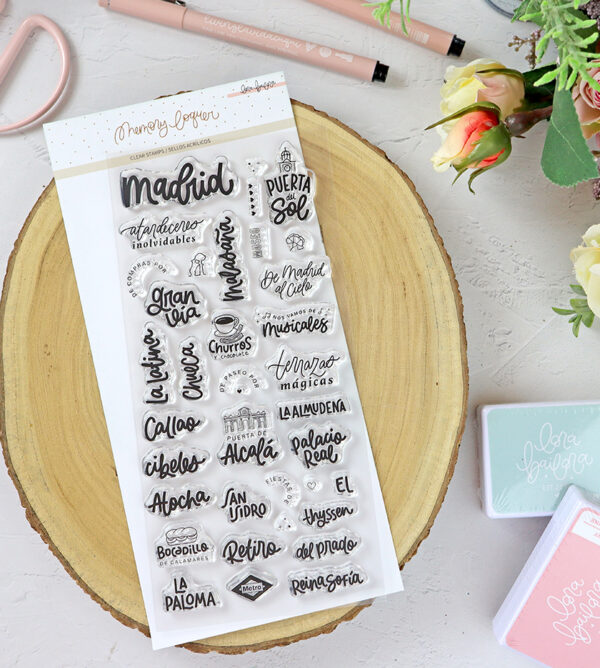 Memory Loquer
lora bailora
CLEAR STAMPS / SELLOS ACRÍLICOS
Madrid
PUERTA
del
Sol
atardeceres
inolvidables
Malasaña
DE COMPRAS POR
Gran
Vía
De Madrid
al Cielo
NOS VAMOS DE
Musicales
La Latina
Chueca
Churros
Y chocolate
terrazas
mágicas
DE PASEO POR
Callao
PUERTA DE
Alcalá
LA ALMUDENA
cibeles
Palacio
Real
Atocha
SAN
ISIDRO
FIESTAS DE
EL
thyssen
Bocadillo
DE CALAMARES
Retiro
del prado
LA
PALOMA
Metro
Reina Sofía
lora
bailora
lora
bailora